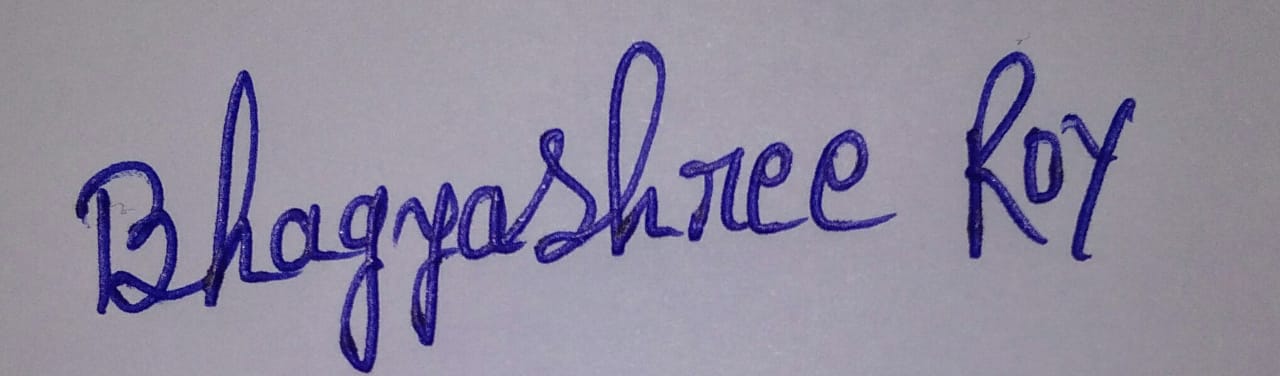 Bhagyashree Roy